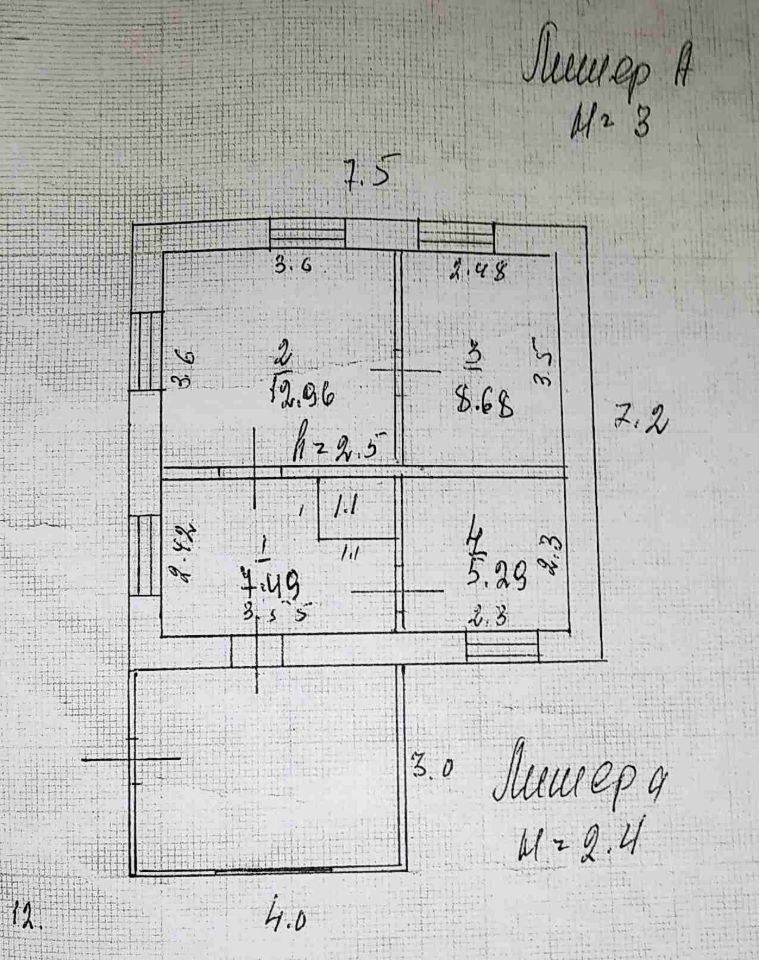 Литер А
Н = 3
7.5
3.6
2.48
3.6
2
12.96
3
8.68
3.5
7.2
h = 2.5
2.42
1
7.49
3.55
1.1
1.1
4
5.29
2.3
2.3
3.0
Литер а
Н = 2.4
12.
4.0